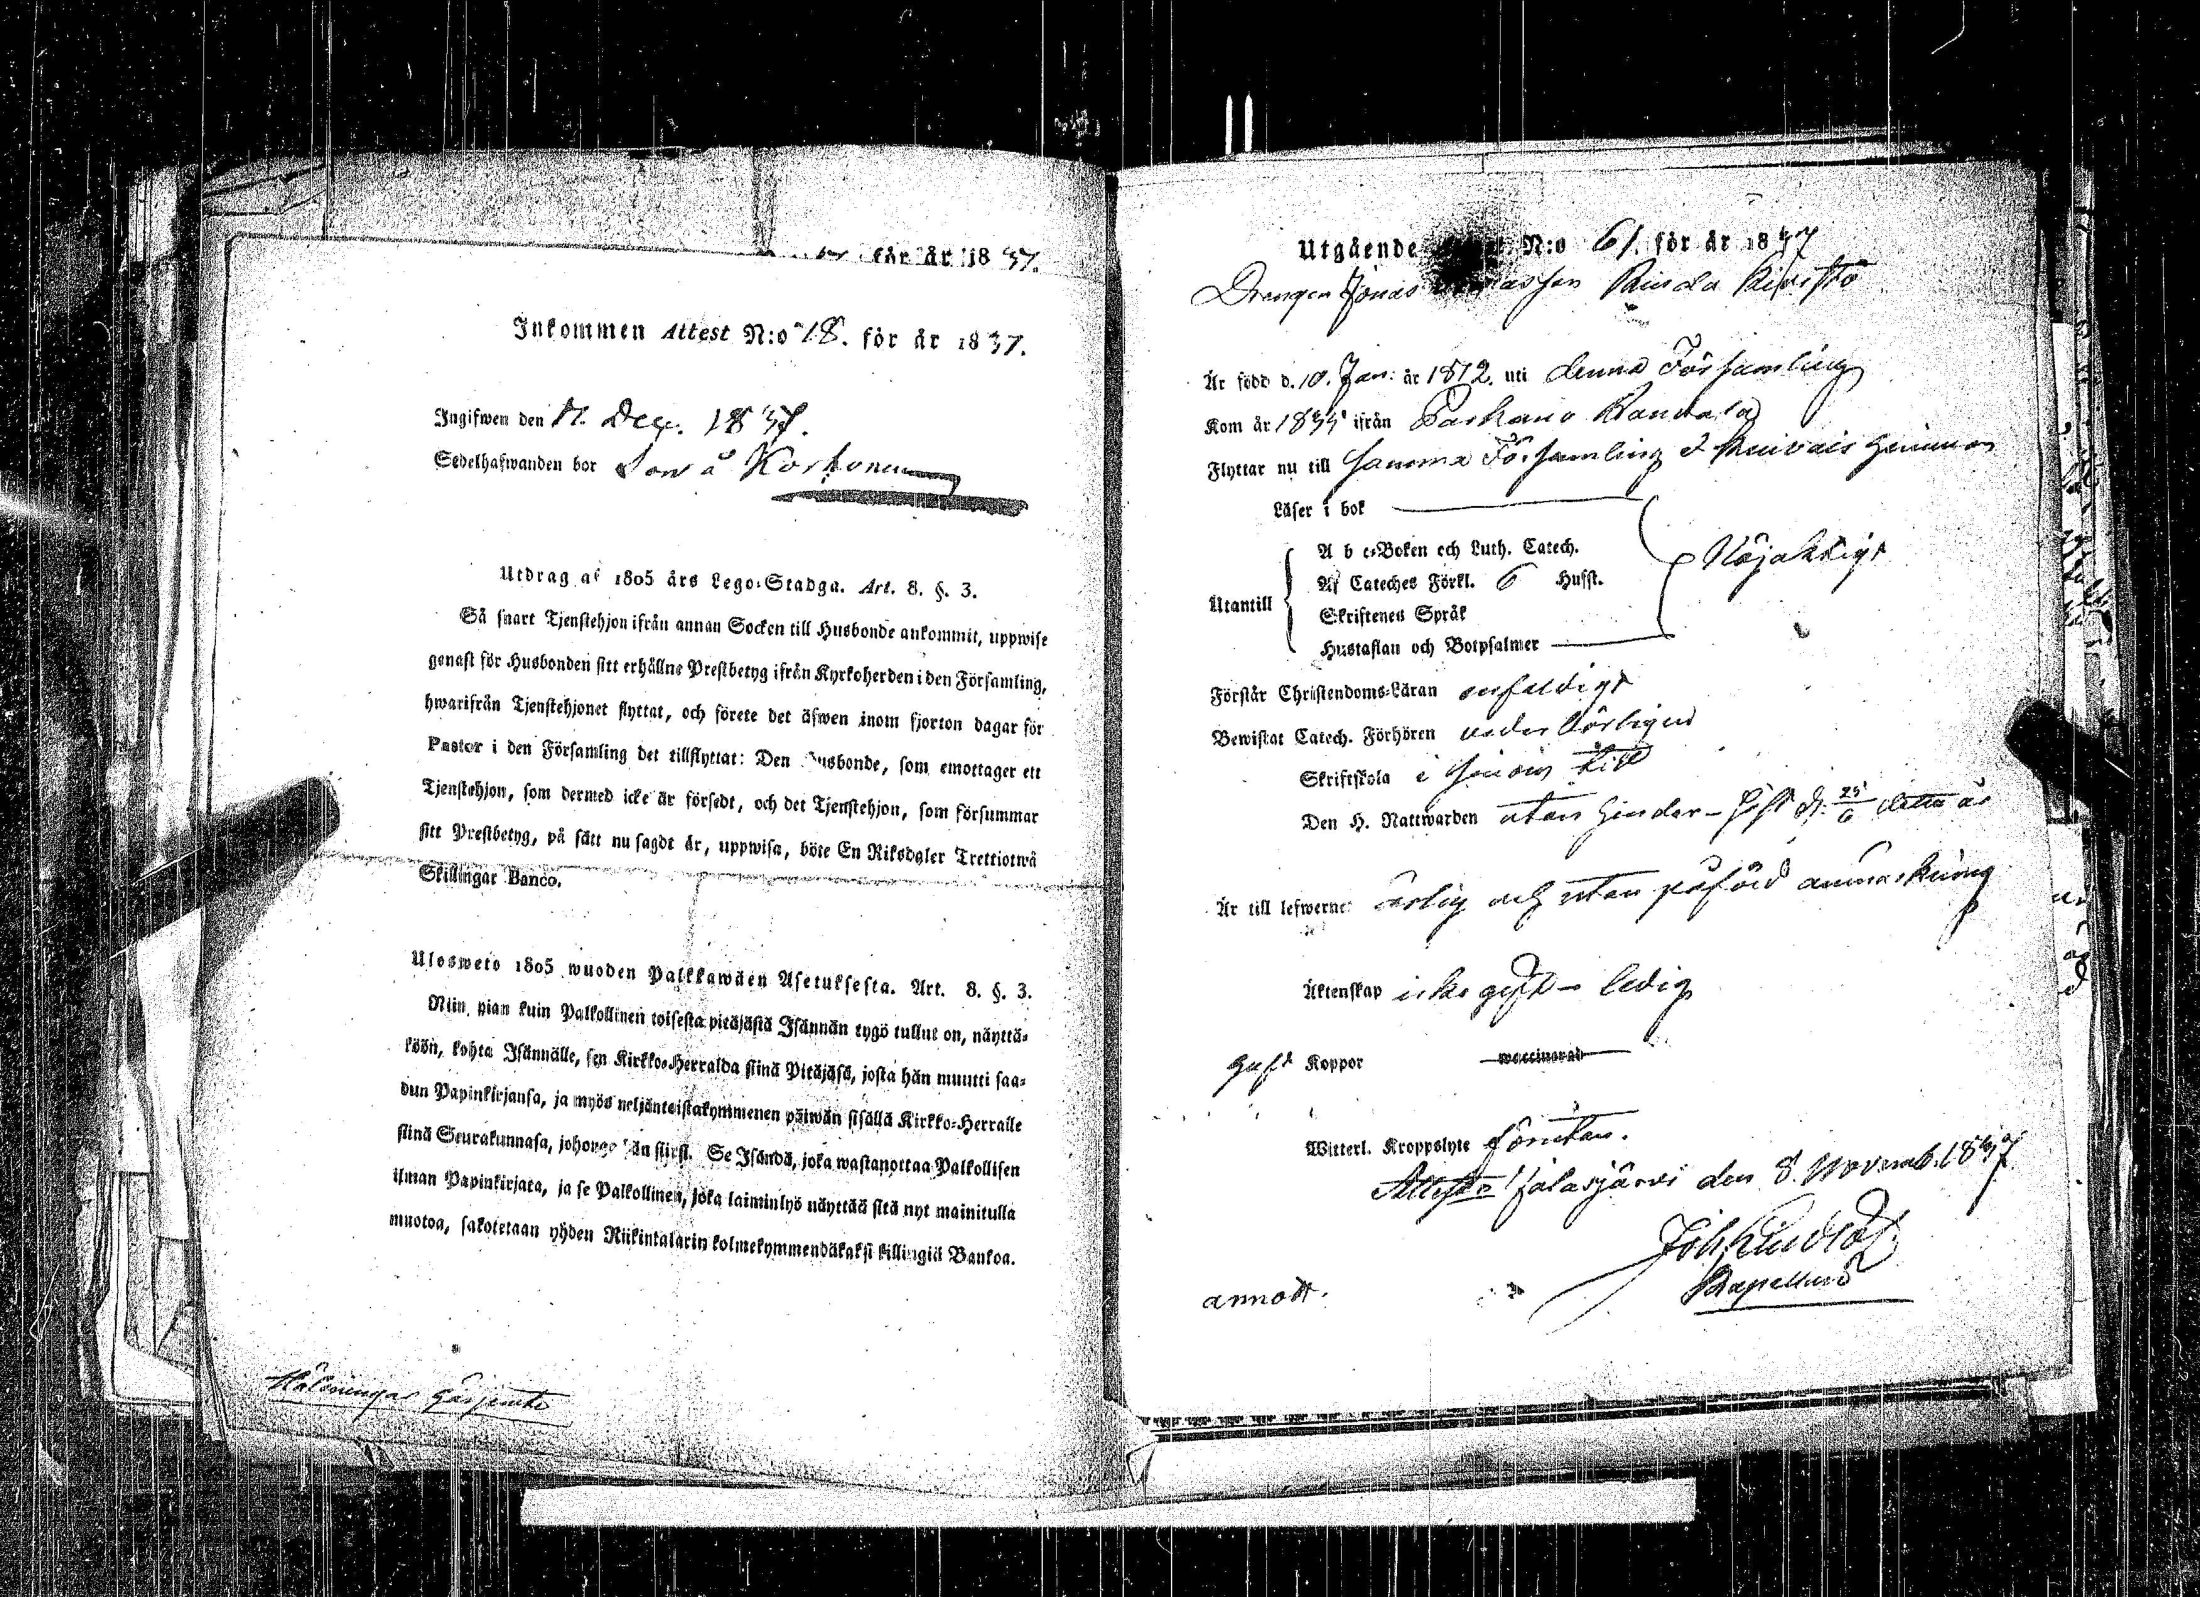 för år 1837.
Inkommen Attest N:o 18. för år 1837.
Ingifwen den 17. Dec. 1837.
Sedelhafwanden bor å Korhonen
Utdrag af 1805 års Lego-Stadga. Art. 8. §. 3.
Så snart Tjenstehjon ifrån annan Socken till Husbonde ankommit, uppwise
genast för Husbonden sitt erhållne Prestbetyg ifrån Kyrkoherden i den Församling,
hwarifrån Tjenstehjonet flyttat, och förete det äfwen inom fjorton dagar för
Pastor i den Församling det tillflyttat: Den Husbonde, som emottager ett
Tjenstehjon, som dermed icke är försedt, och det Tjenstehjon, som försummar
sitt Prestbetyg, på sätt nu sagdt är, uppwisa, böte En Riksdaler Trettiotwå
Skillingar Banco.
Ulosweto 1805 wuoden Palkkawäen Asetuksesta. Art. 8. §. 3.
Niin pian kuin Palkollinen toisesta pitäjästä Isännän tygö tullut on, näyttä-
köön, kohta Isännälle, sen Kirkko-Herralda siinä Pitäjäsä, josta hän muutti saa-
dun Papinkirjansa, ja myös neljäntoistakymmenen päiwän sisällä Kirkko-Herralle
siinä Seurakunnasa, johonga hän siirsi. Se Isändä, joka wastanottaa Palkollisen
ilman Papinkirjata, ja se Palkollinen, joka laiminlyö näyttää sitä nyt mainitulla
muotoa, sakotetaan yhden Riikintalarin kolmekymmendäkaksi killingiä Bankoa.
Utgående N:o 61. för år 1837
Drengen Jonas
Är född d. 10. Jan: år 1812. uti denna Församling
Kom år 1835 ifrån Parkano
Flyttar nu till samma Församling
Läser i bok
A b c-Boken och Luth. Catech. Nöjaktigt
Af Cateches Förkl. 6 Hufst.
Utantill
Skriftenes Språk
Hustaflan och Botpsalmer
Förstår Christendoms-Läran enfaldigt
Bewistat Catech. Förhören wederbörligen
Skriftskola i sinom tid
Den H. Nattwarden utan hinder - sist d. 25/6 detta år
Är till lefwerne: ärlig och utan påförd anmärkning
Äktenskap icke gift - ledig
haft Koppor waccinerad
Witterl. Kroppslyte förutan.
Attestr. Jalasjärvi den 8. Novemb. 1837
Joh
Kapellan
annott.